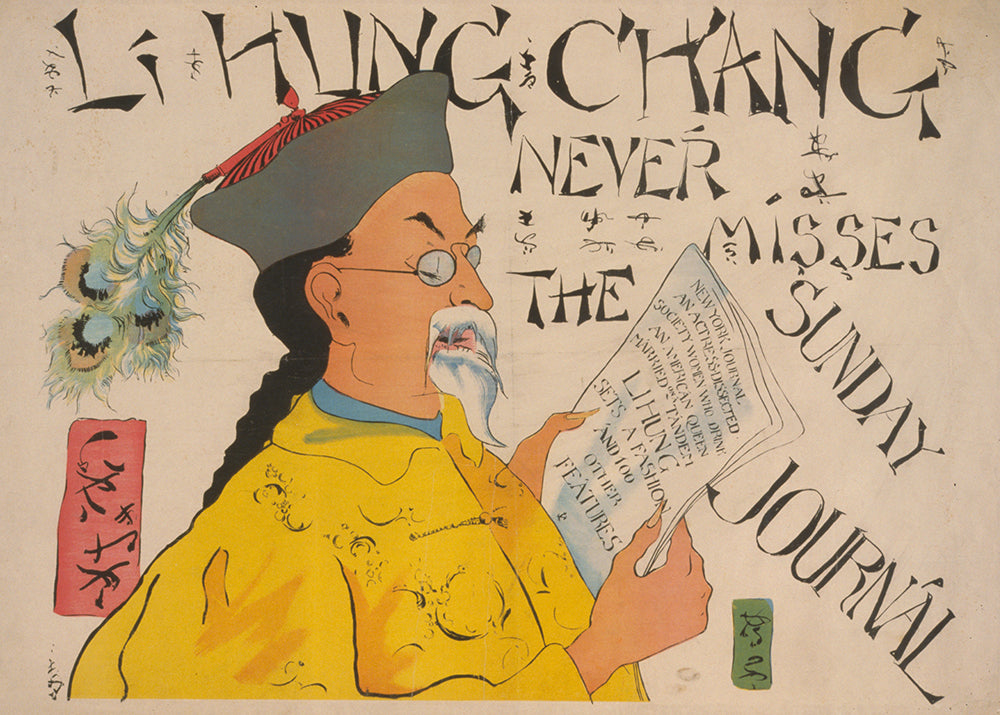 LI HUNG CHANG
NEVER
MISSES
THE
SUNDAY
JOURNAL
NEW YORK JOURNAL
AN ACTRESS DISSECTED
SOCIETY WOMEN WHO DRINK
AN AMERICAN QUEEN
MARRIED ON A TANDEM
LI HUNG
SETS A FASHION
AND 100
OTHER
FEATURES
&